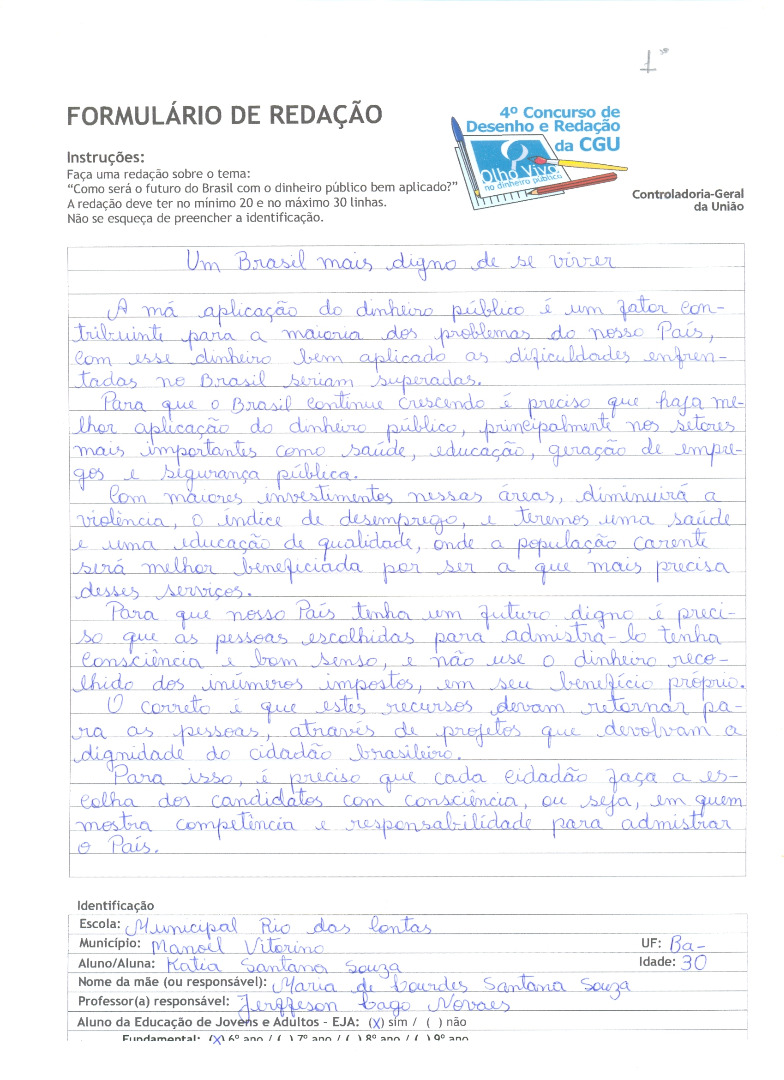 1º
FORMULÁRIO DE REDAÇÃO
4º Concurso de
Desenho e Redação
da CGU
Olho Vivo
no dinheiro público
Controladoria-Geral
da União
Instruções:
Faça uma redação sobre o tema:
“Como será o futuro do Brasil com o dinheiro público bem aplicado?”
A redação deve ter no mínimo 20 e no máximo 30 linhas.
Não se esqueça de preencher a identificação.
Um Brasil mais digno de se viver
A má aplicação do dinheiro público é um fator con-
tribuinte para a maioria dos problemas do nosso País,
com esse dinheiro bem aplicado as dificuldades enfren-
tadas no Brasil seriam superadas.
Para que o Brasil continue crescendo é preciso que haja me-
lhor aplicação do dinheiro público, principalmente nos setores
mais importantes como saúde, educação, geração de empre-
gos e sigurança pública.
Com maiores investimentos nessas áreas, diminuirá a
violência, o índice de desemprego, e teremos uma saúde
e uma educação de qualidade, onde a população carente
será melhor beneficiada por ser a que mais precisa
desses serviços.
Para que nosso País tenha um futuro digno é preci-
so que as pessoas escolhidas para admistra-lo tenha
consciência e bom senso, e não use o dinheiro reco-
lhido dos inúmeros impostos, em seu benefício próprio.
O correto é que estes recursos devam retornar pa-
ra as pessoas, através de projetos que devolvam a
dignidade do cidadão brasileiro.
Para isso, é preciso que cada cidadão faça a es-
colha dos candidatos com consciência, ou seja, em quem
mostra competência e responsabilidade para admistrar
o País.
Identificação
Escola: Municipal Rio das Contas
Município: Manoel Vitorino UF: Ba-
Aluno/Aluna: Katia Santana Souza Idade: 30
Nome da mãe (ou responsável): Maria de Lourdes Santana Souza
Professor(a) responsável: Jerffeson Lago Novaes
Aluno da Educação de Jovens e Adultos - EJA: (x) sim / ( ) não
Fundamental: (x) 6º ano / ( ) 7º ano / ( ) 8º ano / ( ) 9º ano